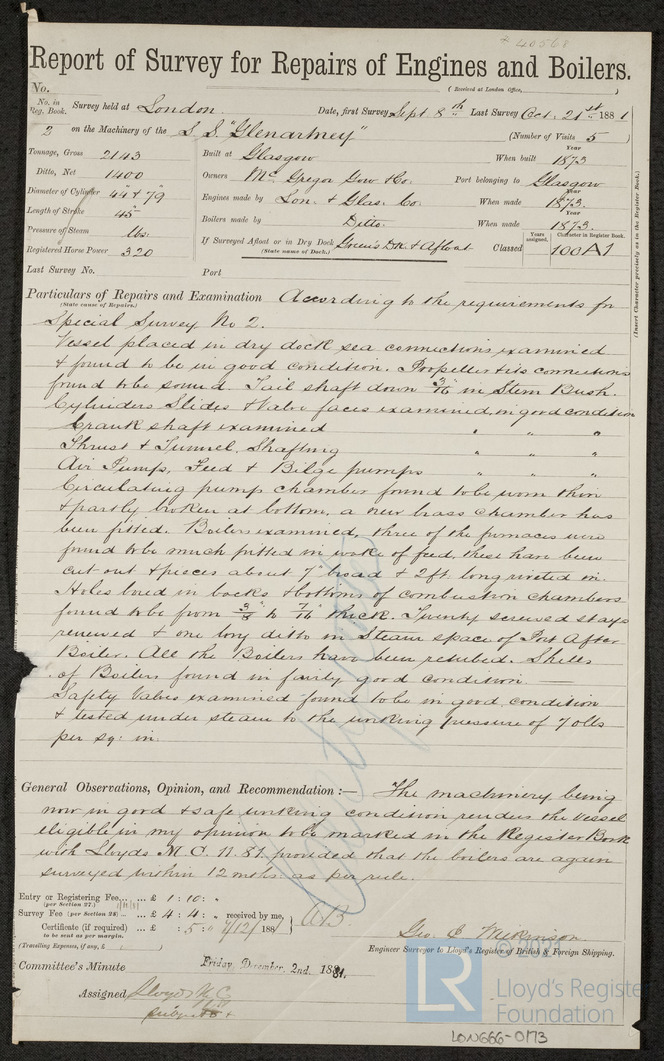 40568
Report of Survey for Repairs of Engines and Boilers.
No.
(Received at London Office,
No. in Reg. Book. Survey held at London Date, first Survey Sept. 8th Last Survey Oct. 21st 1881
2 on the Machinery of the S.S. "Glenartney" (Number of Visits 5 )
Tonnage, Gross 2143 Built at Glasgow When built Year 1873
Ditto, Net 1400 Owners McGregor Gow & Co. Port belonging to Glasgow
Diameter of Cylinder 44 & 79 Engines made by Lon. & Glas. Co When made Year 1873.
Length of Stroke 45" Boilers made by Ditto. When made Year 1873.
Pressure of Steam lbs. If Surveyed Afloat or in Dry Dock Green's DK & Afloat Classed Years assigned. Character in Register Book. 100A1
(State name of Dock.)
Registered Horse Power 320
Last Survey No. Port
(Insert Character precisely as in the Register Book.)
Particulars of Repairs and Examination According to the requirements for
(State cause of Repairs.)
Special Survey No 2.
Vessel placed in dry dock sea connections examined
& found to be in good condition. Propeller & its connections
found to be sound. Tail shaft down 3/16" in Stern Bush.
Cylinders Slides & Valve faces examined, in good condition
Crank shaft examined " " "
Thrust & Tunnel Shafting " " "
Air Pumps, Feed & Bilge pumps " " "
Circulating pumps chamber found to be worn thin
& partly broken at bottom, a new brass chamber has
been fitted. Boilers examined, three of the furnaces were
found to be much pitted in wake of feed, these have been
cut out & pieces about 7" broad & 2 ft. long riveted in.
Holes bored in backs & bottoms of combustion chambers
found to be from 3/8" to 7/16" thick. Twenty screwed stays
renewed & one long ditto in Steam space of Port After
Boiler. All the Boilers have been retubed. Shells
of Boilers found in fairly good condition —
Safety Valves examined found to be in good condition
& tested under steam to the working pressure of 70 lbs
per sq: in.
General Observations, Opinion, and Recommendation:— The machinery being
now in good & safe working condition renders the vessel
eligible in my opinion to be marked in the Register Book
with Lloyds M.C. 11.81 provided that the boilers are again
surveyed within 12 mths. as per rule.
Entry or Registering Fee... ... £ 1 : 10 : "
(per Section 27.)
Survey Fee (per Section 28)... ... £ 4 : 4 : " received by me,
Certificate (if required) ... £ : 5 : " 7/12/ 1881
to be sent as per margin.
(Travelling Expenses, if any, £ )
Engineer Surveyor to Lloyd's Register of British & Foreign Shipping.
Committee's Minute Friday, December, 2nd. 1881.
Assigned Lloyds M.C.
subject
© 2021
LR
Lloyd's Register
Foundation
LON666-0173